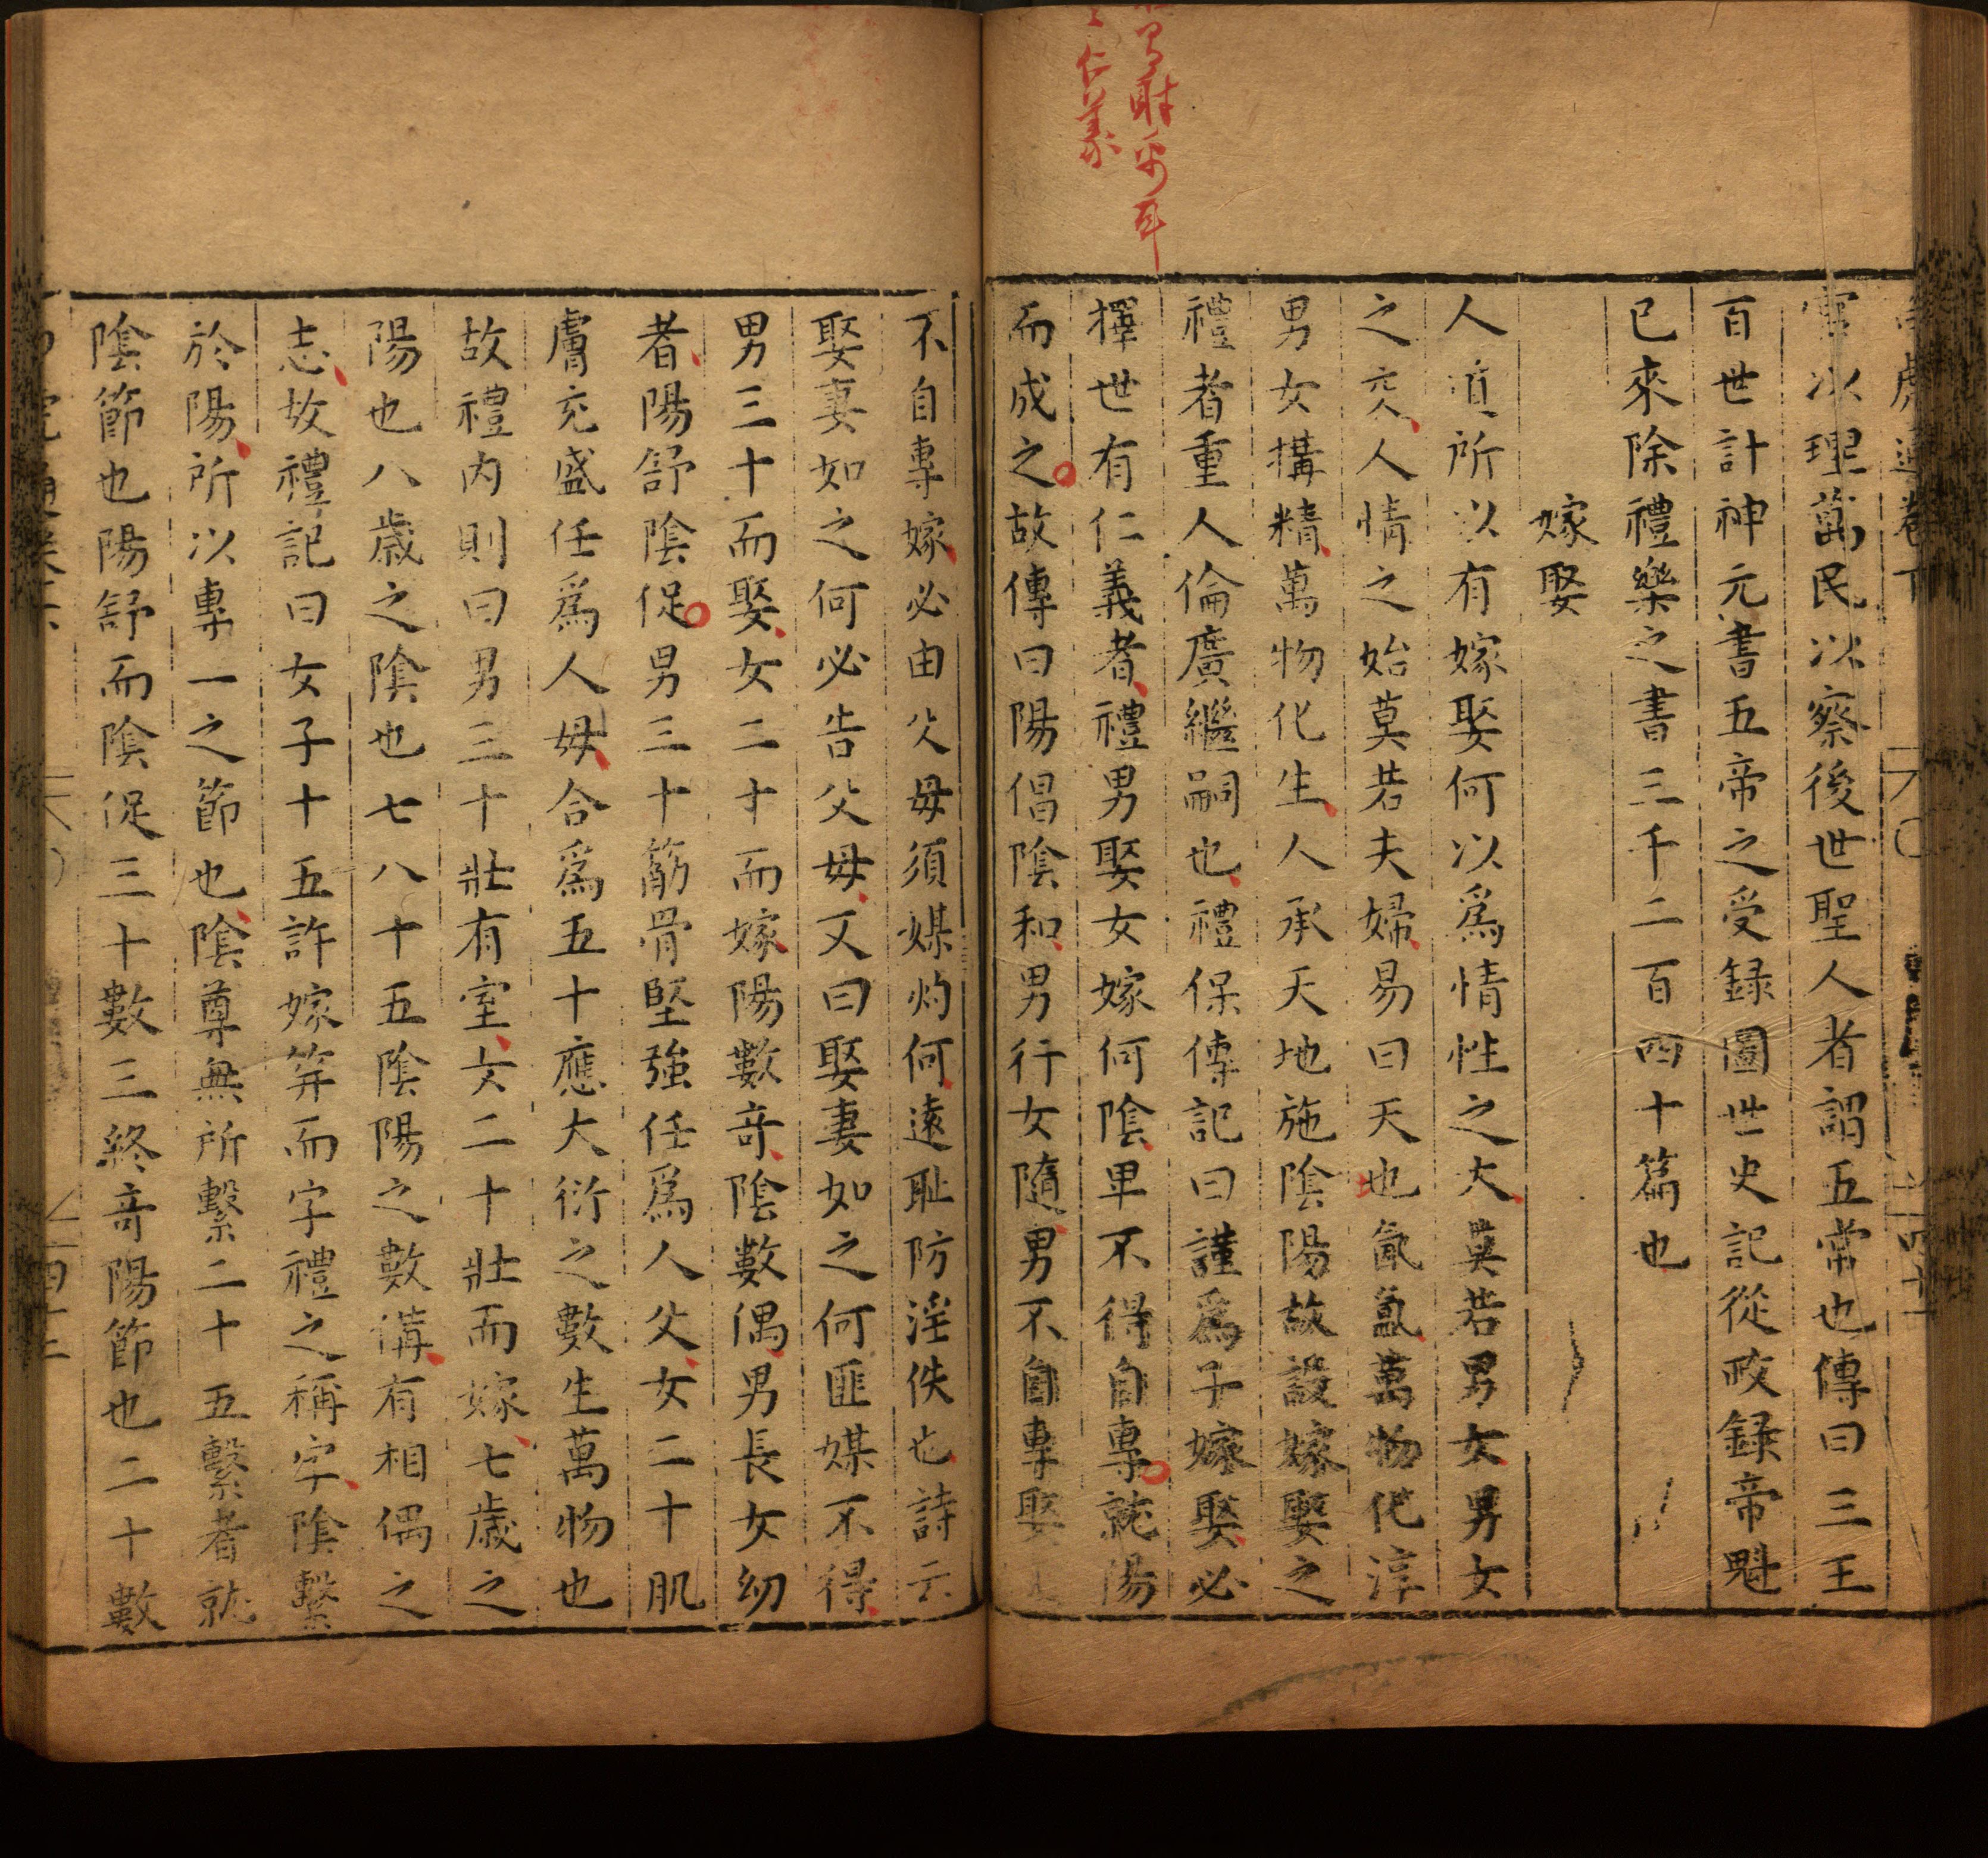 官以理萬民以察後世聖人者謂五常也傳曰三王
百世計神元書五帝之受録圖世史記從政録帝魁
已來除禮樂之書三千二百四十篇也
嫁娶
人道所以有嫁娶何以爲情性之大莫若男女男女
之交人情之始莫若夫婦易曰天也氤氳萬物化淳
男女搆精萬物化生人承天地施陰陽故設嫁娶之
禮者重人倫廣繼嗣也禮保傳記曰謹爲子嫁娶必
擇世有仁義者禮男娶女嫁何陰卑不得自專就陽
而成之故傳曰陽倡陰和男行女隨男不自專娶
不自專嫁必由父母須媒妁何遠耻防淫佚也詩云
娶妻如之何必告父母又曰娶妻如之何匪媒不得
男三十而娶女二十而嫁陽數奇陰數偶男長女幼
者陽舒陰促男三十筋骨堅強任爲人父女二十肌
膚充盛任爲人母合爲五十應大衍之數生萬物也
故禮内則曰男三十壯有室女二十壯而嫁七歲之
陽也八歲之陰也七八十五陰陽之數備有相偶之
志故禮記曰女子十五許嫁笄而字禮之稱字陰繫
於陽所以專一之節也陰尊無所繫二十五繫者就
陰節也陽舒而陰促三十數三終奇陽節也二十數
仁義